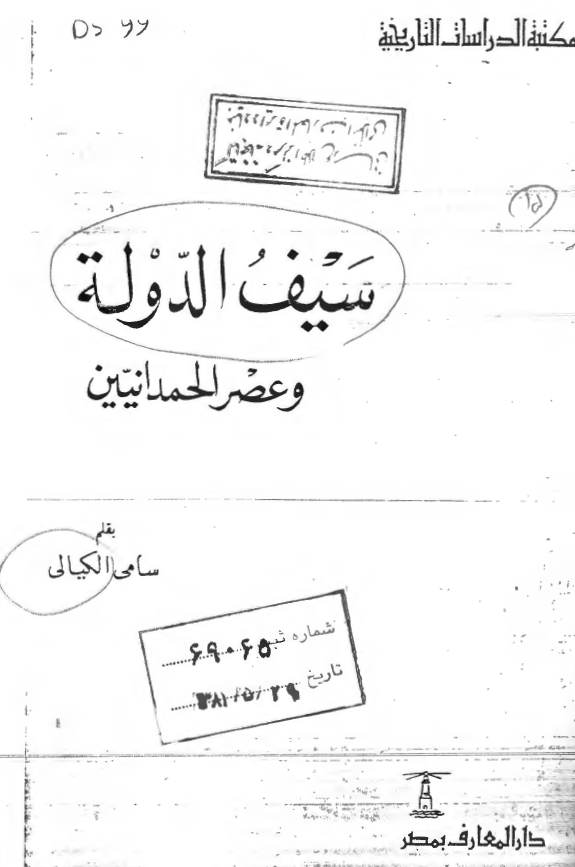 DS 99
مكتبة الدراسات التاريخية
سَيْفُ الدّوْلة
وعصْر الحمدانيّين
بقلم
سامى الكيالى
شماره ثبت ۶۹۰۶۵
تاریخ ۳۸۱/۵/۲۹
دار المعارف بمصر